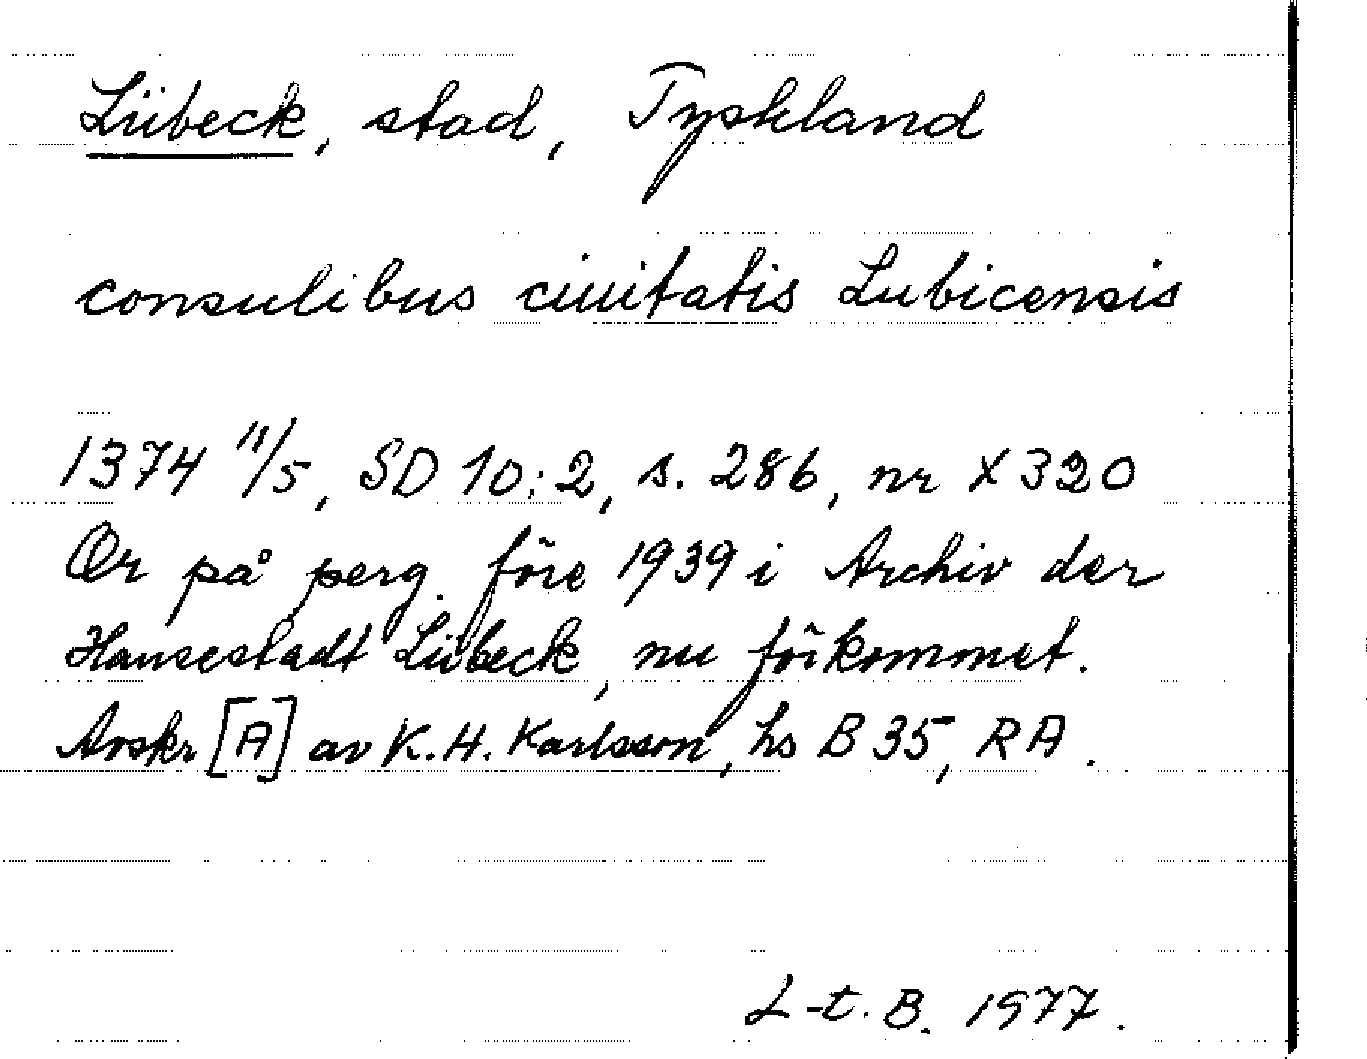 Lübeck, stad, Tyskland
consulibus ciuitatis Lubicensis
1374 11/5, SD 10:2, s. 286, nr X320
Or på perg. före 1939 i Archiv der
Hansestadt Lübeck, nu förkommet.
Avskr [A] av K.H. Karlsson, hs B 35, RA.
L-t. B. 1977.